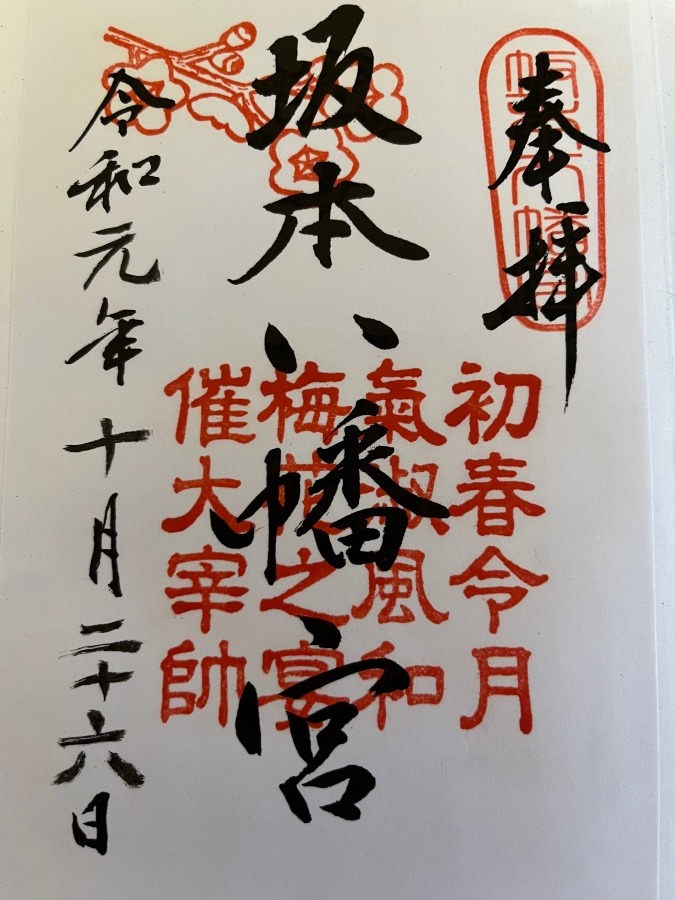 奉拝
坂本八幡宮
令和元年十月二十六日
初春令月
氣淑風和
梅花之宴
催大宰帥